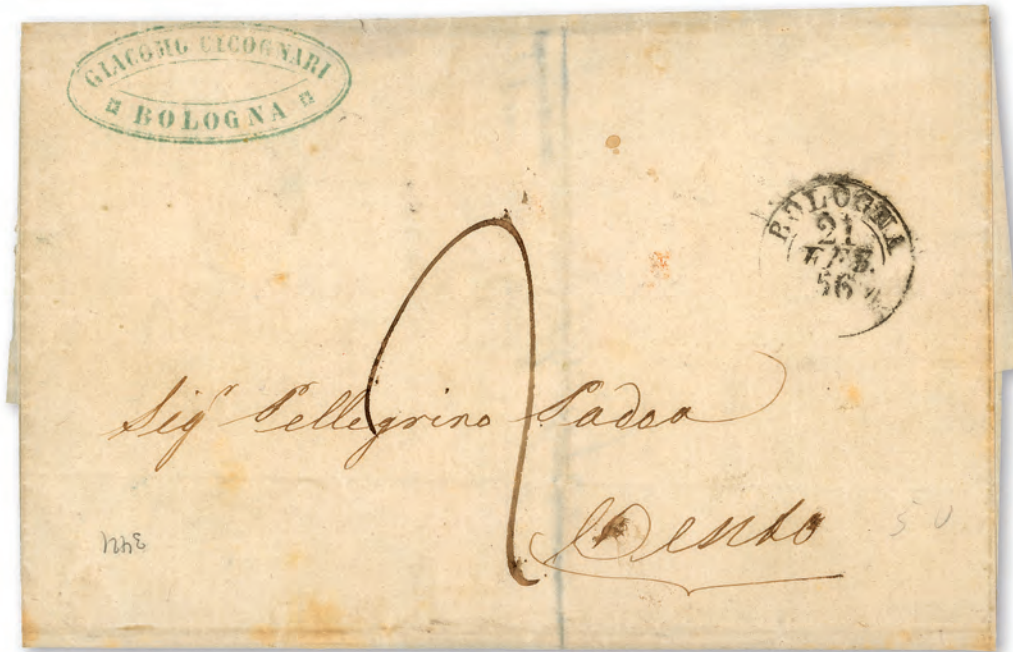 GIACOMO CICOGNARI
BOLOGNA
BOLOGNA
21
FEB.
56
2
Sigr Pellegrino Padoa
Cento
5 U